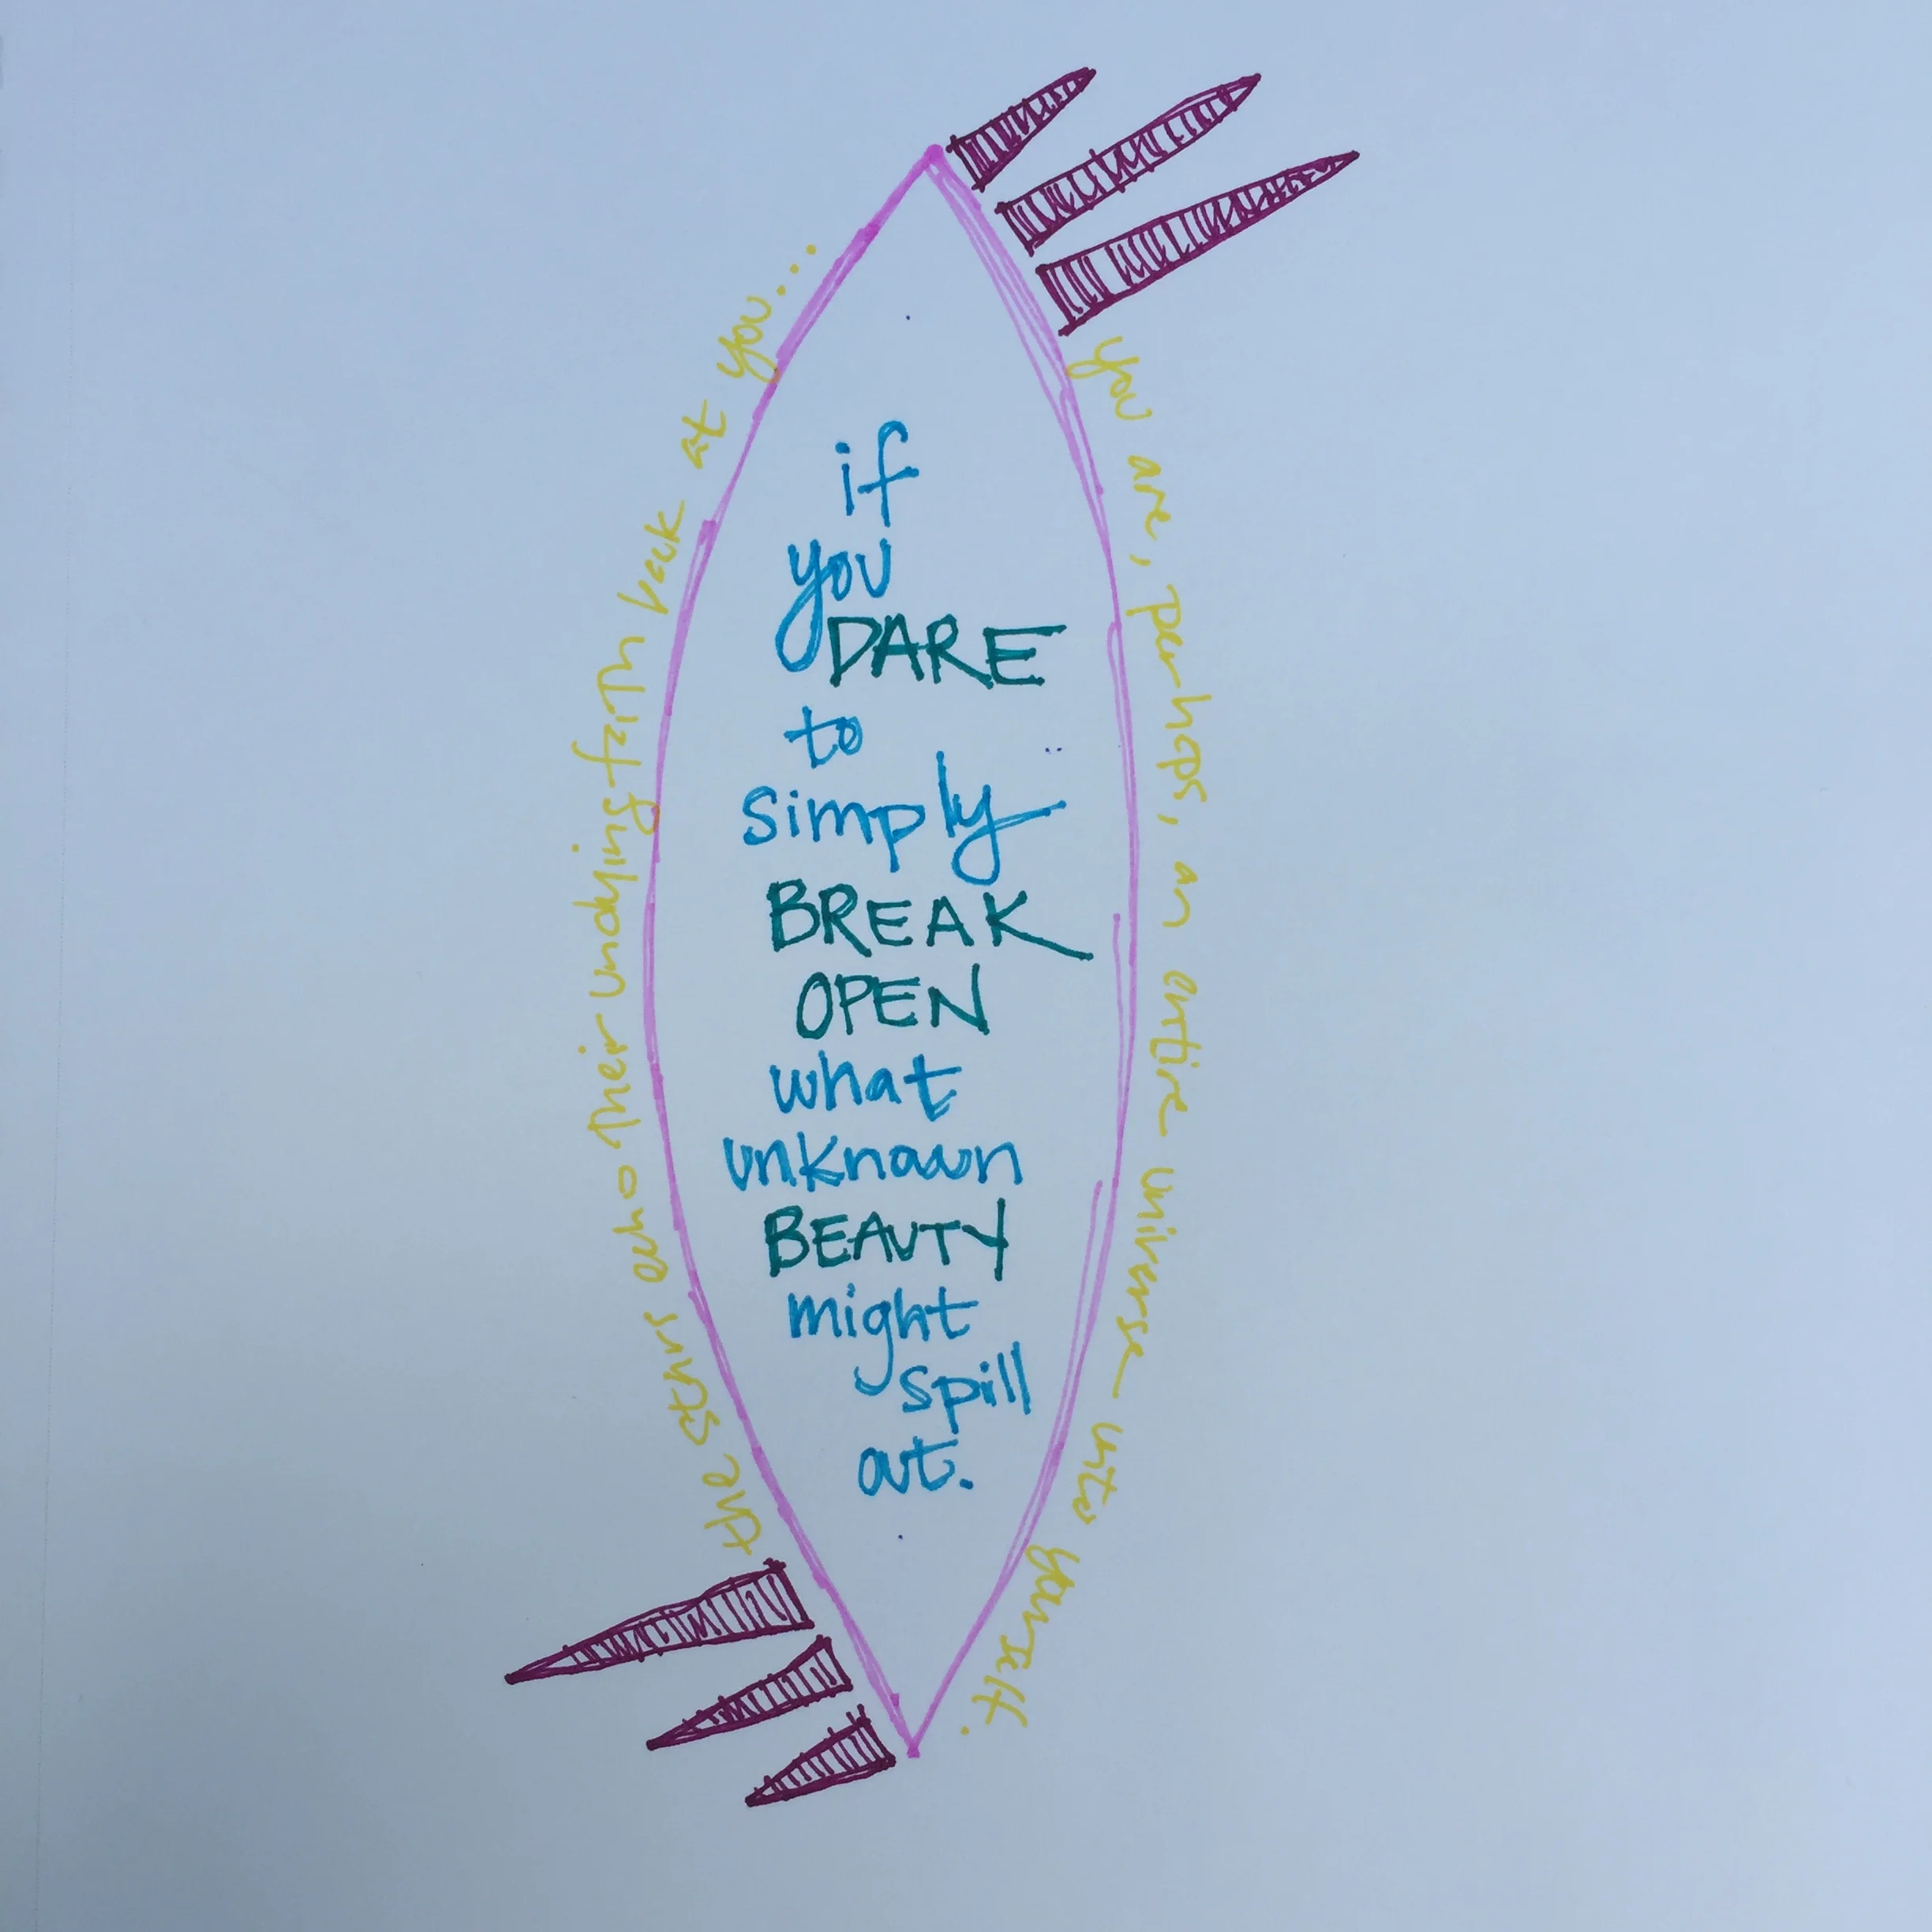 if
you
DARE
to
simply
BREAK
OPEN
what
unknown
BEAUTY
might
spill
out.
the stars echo their undying faith back at you...
you are, perhaps, an entire universe unto yourself.